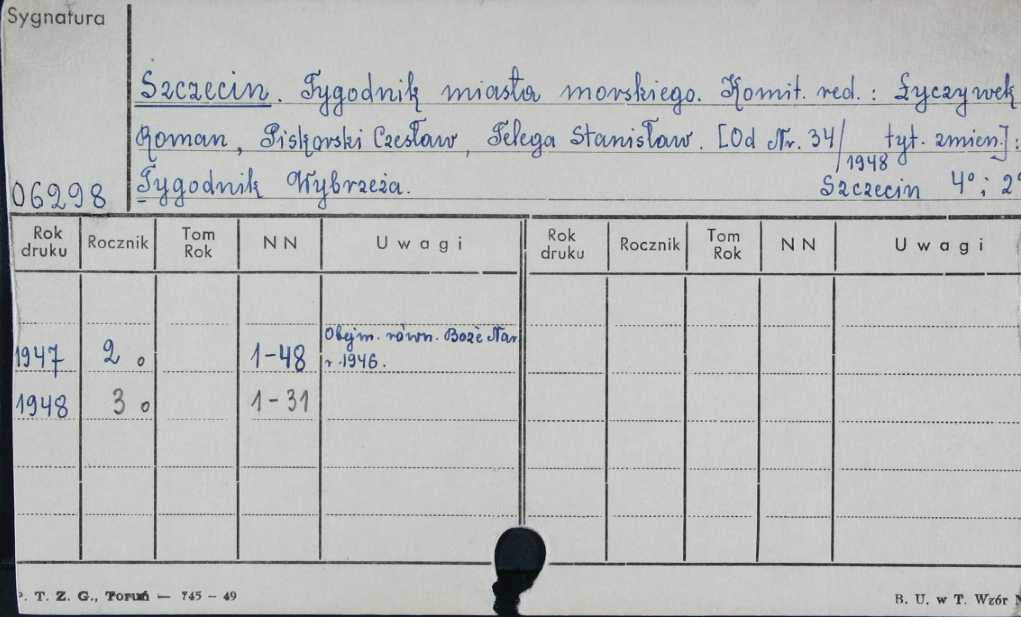 Sygnatura
Szczecin. Tygodnik miasta morskiego. Komit. red.: Łyczywek
Roman, Piskorski Czesław, Telega Stanisław. [Od Nr. 34/1948 tyt. zmien.]:
06298 Tygodnik Wybrzeża. Szczecin 4°; 2°
Rok druku Rocznik Tom Rok NN Uwagi Rok druku Rocznik Tom Rok NN Uwagi
1947 2 o 1-48 Obejm. równ. Boże Nar. r. 1946.
1948 3 o 1-31
P. T. Z. G., Toruń — 745 - 49
B. U. w T. Wzór